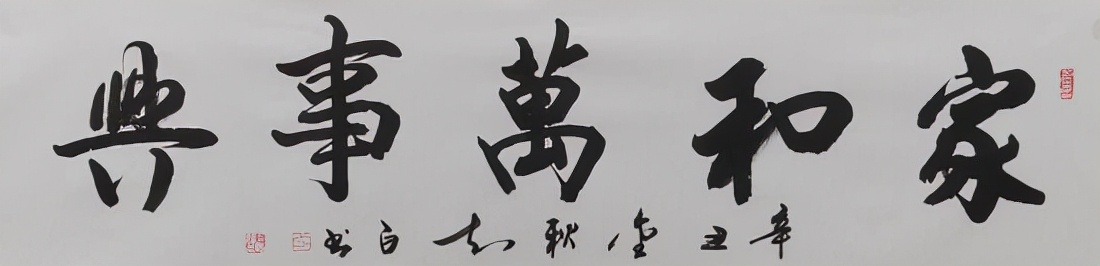 家和萬事興
辛丑金秋知白书